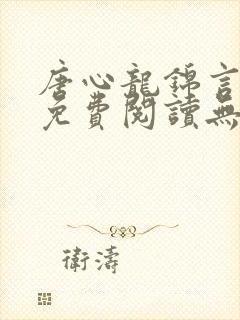 唐心龍錦言
免費閱讀無
衛濤